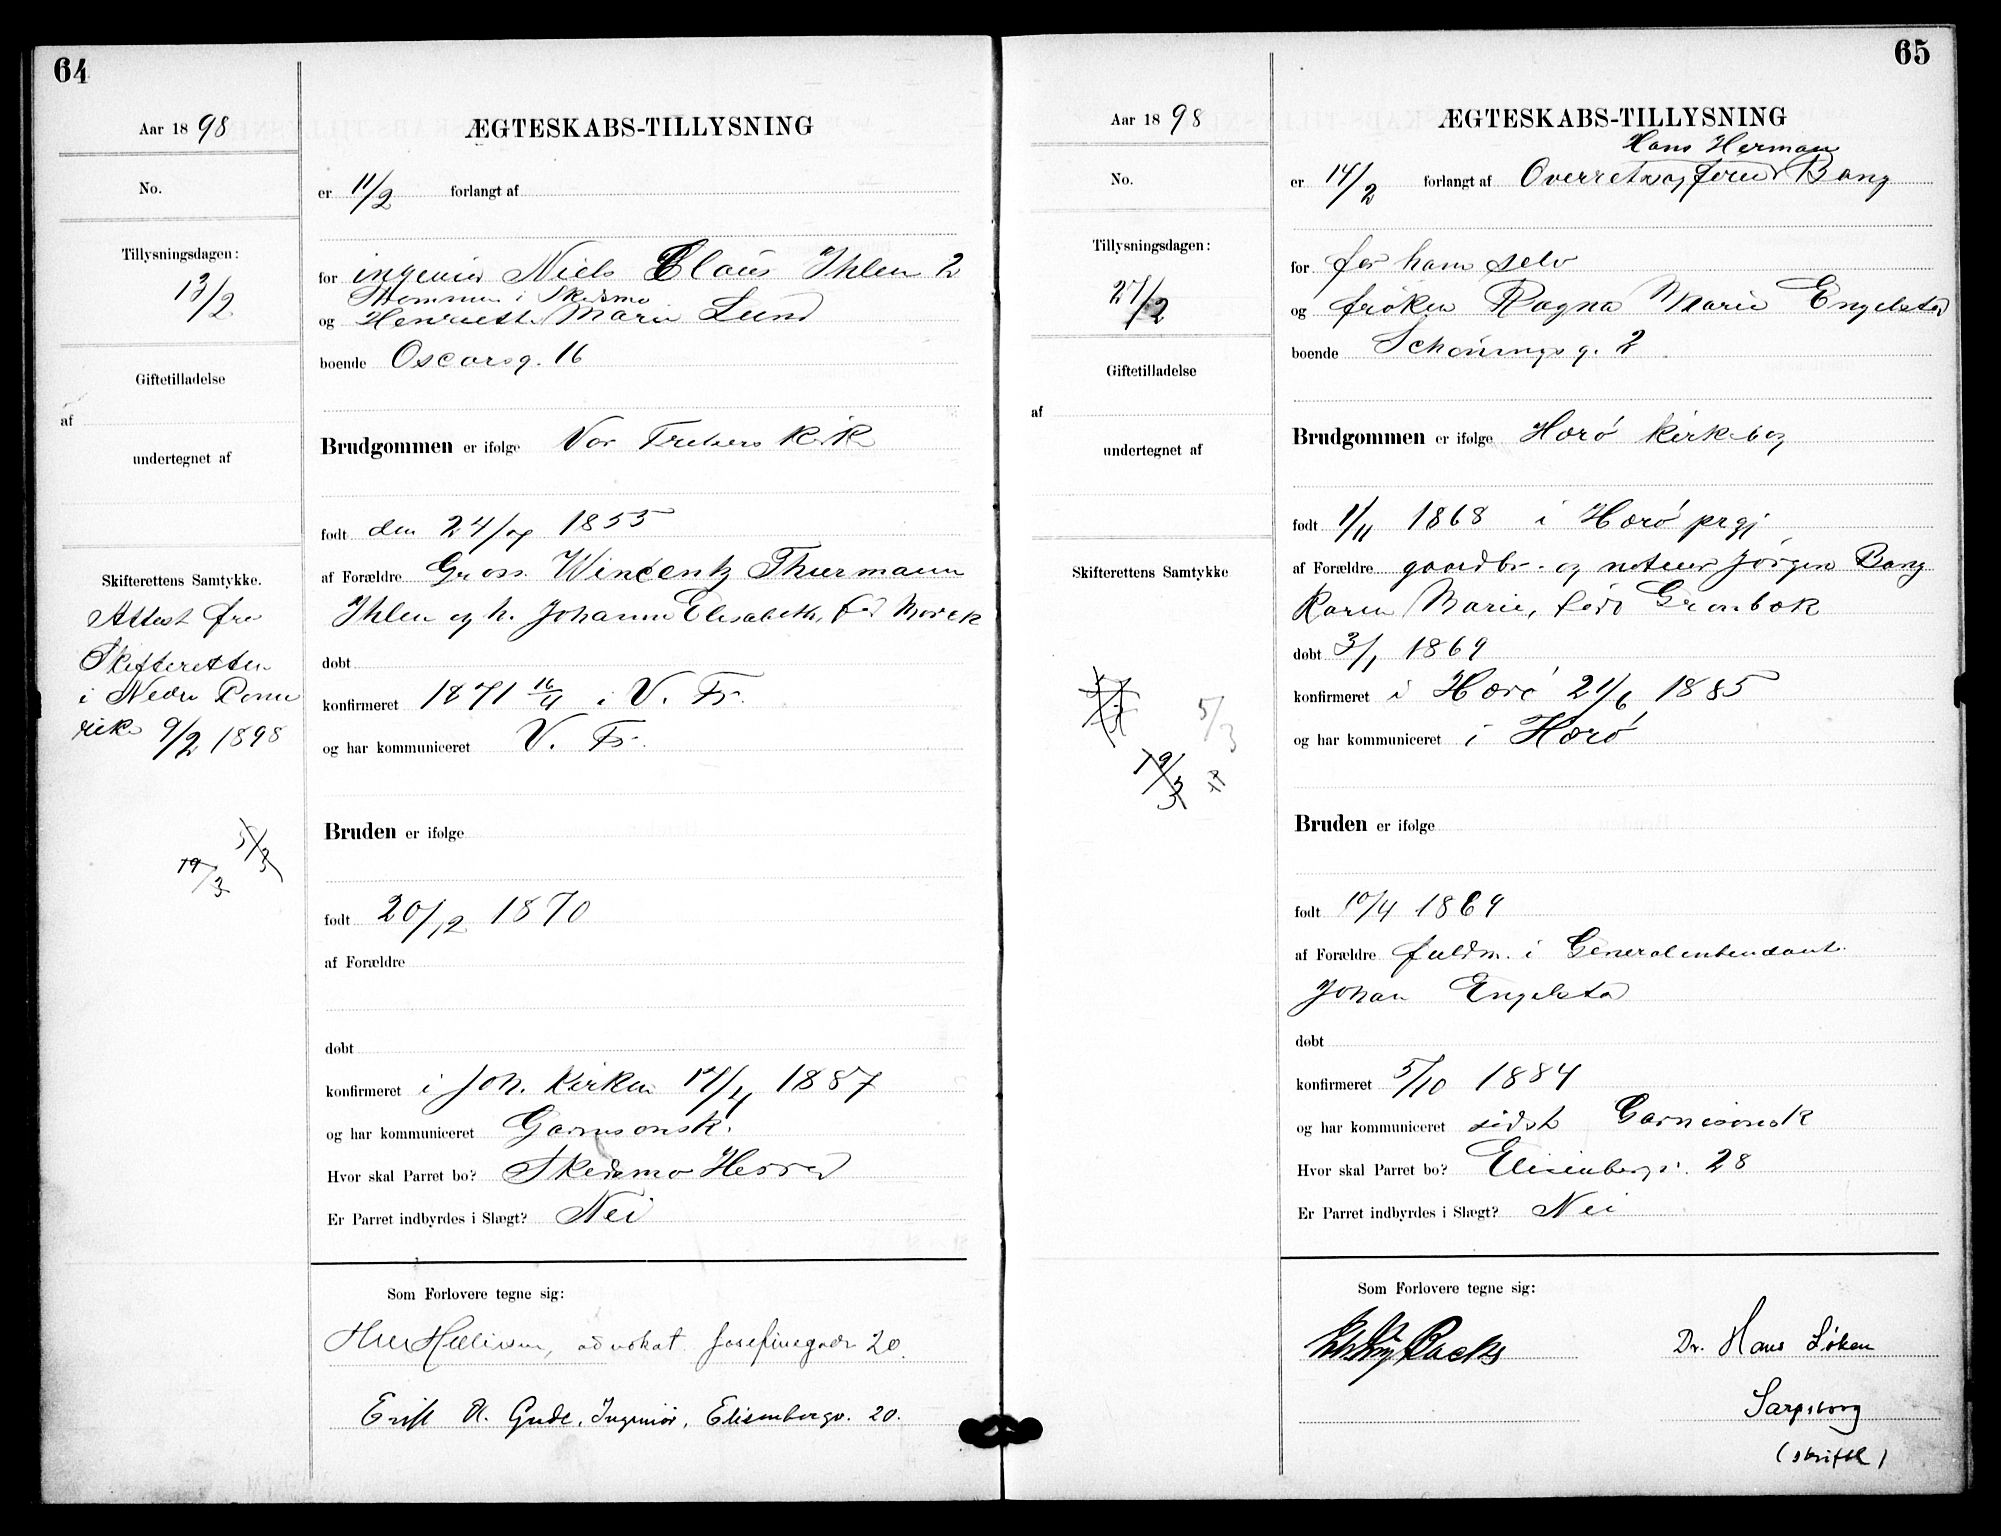 64
Aar 1898
No.
Tillysningsdagen:
13/2
Giftetilladelse
af
undertegnet af
Skifterettens Samtykke.
Attest fra
Skifteretten
i Nedre Rome
rike 9/2 1898
5/3
19/3
ÆGTESKABS-TILLYSNING
er 11/2 forlangt af
for ingeniør Niels Claus Ihlen 2
Strømmen i Skedsmo
og Henriette Marie Lund
boende Oscarsg. 16
Brudgommen er ifølge Vor Frelsers Kirke
født den 24/7 1855
af Forældre Gross. Wincentz Thurmann
Ihlen og h. Johanne Elisabeth, fød
døbt
konfirmeret 1871 16/4 i V. Fr.
og har kommuniceret V. Fr.
Bruden er ifølge
født 20/12 1870
af Forældre
døbt
konfirmeret i Joh. Kirken 17/4 1887
og har kommuniceret Garnisonsk.
Hvor skal Parret bo? Skedsmo Herred
Er Parret indbyrdes i Slægt? Nei
Som Forlovere tegne sig:
advokat Josefinegade 20.
H. Gude, Ingeniør, Elisenbergv. 20.
65
Aar 1898
No.
Tillysningsdagen:
27/2
Giftetilladelse
af
undertegnet af
Skifterettens Samtykke
5/3
19/3
ÆGTESKABS-TILLYSNING
Hans Herman
er 14/2 forlangt af Overretssagfører Bang
for for ham selv
og frøken Ragna Marie Engelstad
boende Schøningsg. 2
Brudgommen er ifølge Herø kirkebog
født 1/11 1868 i Herø prgj.
af Forældre gaardbr. og Jørgen Bang
Karen Marie, født Grønbæk
døbt 3/1 1869
konfirmeret i Herø 21/6 1885
og har kommuniceret i Herø
Bruden er ifølge
født 10/4 1869
af Forældre fuldm. i Generalintendant.
Johan Engelstad
døbt
konfirmeret 5/10 1884
og har kommuniceret sidst Garnisonsk
Hvor skal Parret bo? Elisenbergv. 28
Er Parret indbyrdes i Slægt? Nei
Som Forlovere tegne sig:
Dr. Hans Løken
Sarpsborg
(skriftl)